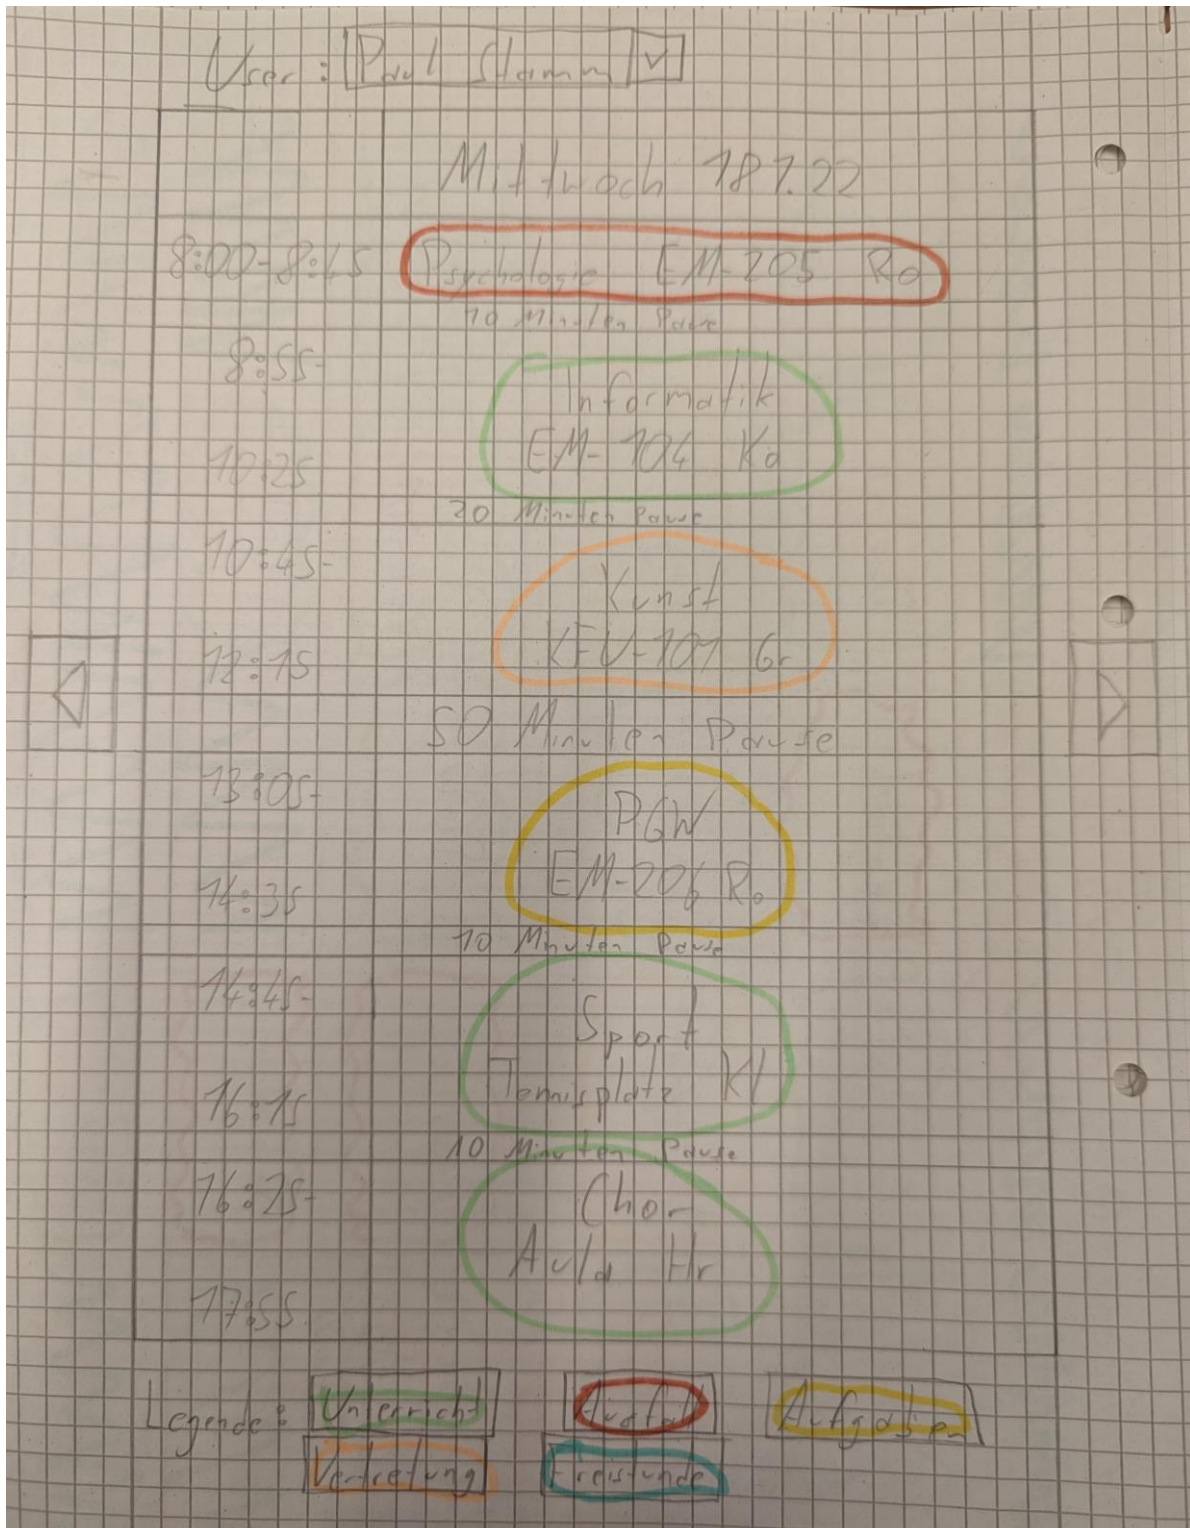 User: Paul Stamm
Mittwoch 18.1.22
8:00-8:45 Psychologie EM-205 Ro
10 Minuten Pause
8:55-
Informatik
EM-104 Kö
10:25
20 Minuten Pause
10:45-
Kunst
KEU-101 Gr
12:15
50 Minuten Pause
13:05-
PGW
EM-206 Ro
14:35
10 Minuten Pause
14:45-
Sport
Tennisplatz Kl
16:15
10 Minuten Pause
16:25-
Chor
Aula Hr
17:55
Legende: Unterricht Ausfall Aufgaben
Vertretung Freistunde